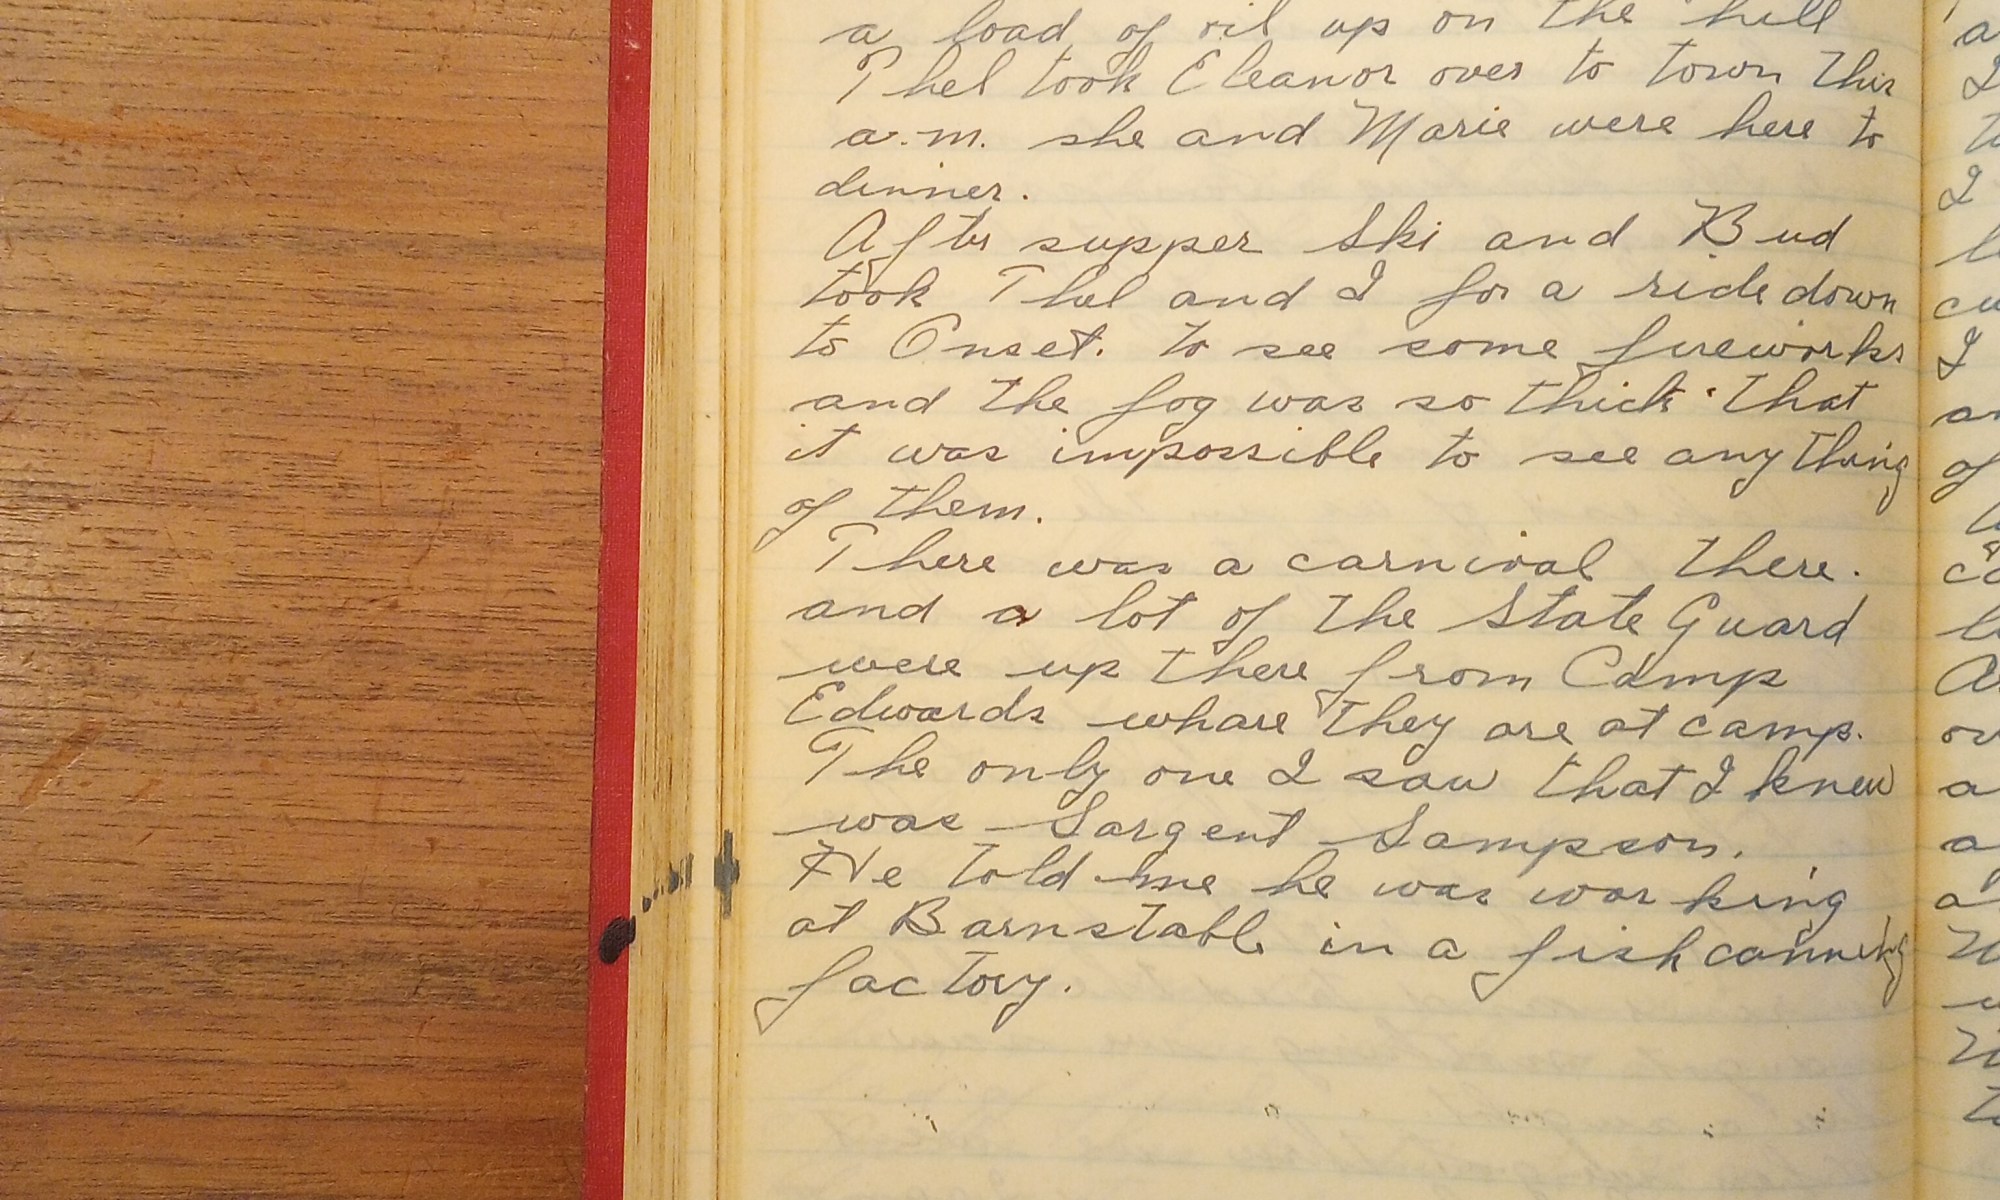 a load of oil up on the hill
Thel took Eleanor over to town this
a.m. she and Marie were here to
dinner.
After supper Ski and Bud
took Thel and I for a ride down
to Onset. to see some fireworks
and the fog was so thick that
it was impossible to see any thing
of them.
There was a carnival there.
and a lot of the State Guard
were up there from Camp
Edwards whare they are at camp.
The only one I saw that I knew
was Sargent Sampson.
He told me he was working
at Barnstable in a fish canning
factory.